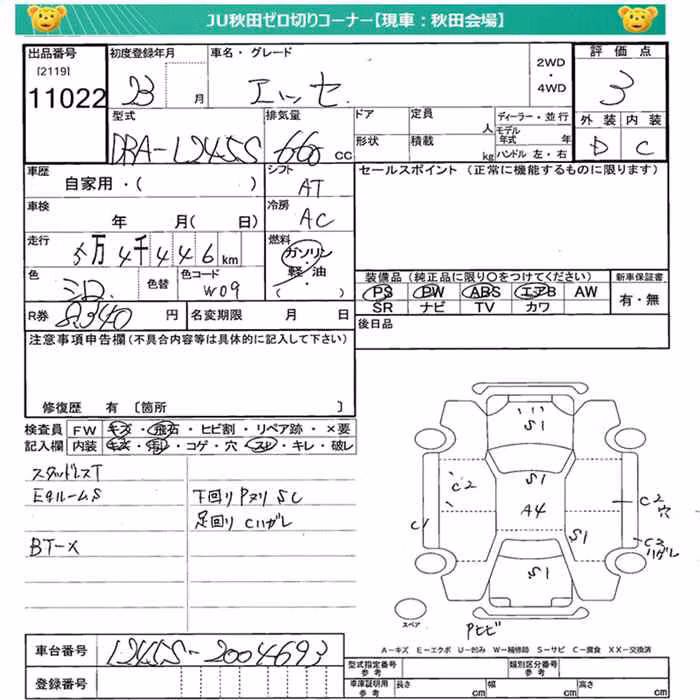 JU秋田ゼロ切りコーナー【現車：秋田会場】
出品番号 初度登録年月 車名・グレード 2WD・4WD 評価点
[2119]
11022 23 月 エッセ 3
型式 排気量 ドア 定員 人 ディーラー・並行 外装 内装
DBA-L245S 660cc 形状 積載 kg モデル年式 年 ハンドル 左・右 D C
車歴 シフト セールスポイント (正常に機能するものに限ります)
自家用・( ) AT
車検 冷房
年 月( 日) AC
走行 燃料
万 4千446km ガソリン・軽・油( )
色 色替 色コード 装備品(純正品に限り○をつけてください) 新車保証書
W09 PS PW ABS エアB AW 有・無
SR ナビ TV カワ
R券 8,340円 名変期限 月 日 後日品
注意事項申告欄(不具合内容等は具体的に記入して下さい)
修復歴 有 〔箇所 〕
検査員 FW キズ・飛石・ヒビ割・リペア跡・×要
記入欄 内装 キズ・汚レ・コゲ・穴・スレ・キレ・破レ
スタッドレスT
Eルーム S 下回り Pヌリ SC
足回り Cハガレ
BT-X
S1
C2 S1 C2 穴
A4
C1 S1 C3 ハガレ
S1
スペア Pヒビ
A－キズ E－エクボ U－凹み W－補修跡 S－サビ C－腐食 XX－交換済
車台番号 L245S-2004693
登録番号
型式指定番号 参考 類別区分番号 参考
車庫証明用 参考 長さ cm 幅 cm 高さ cm